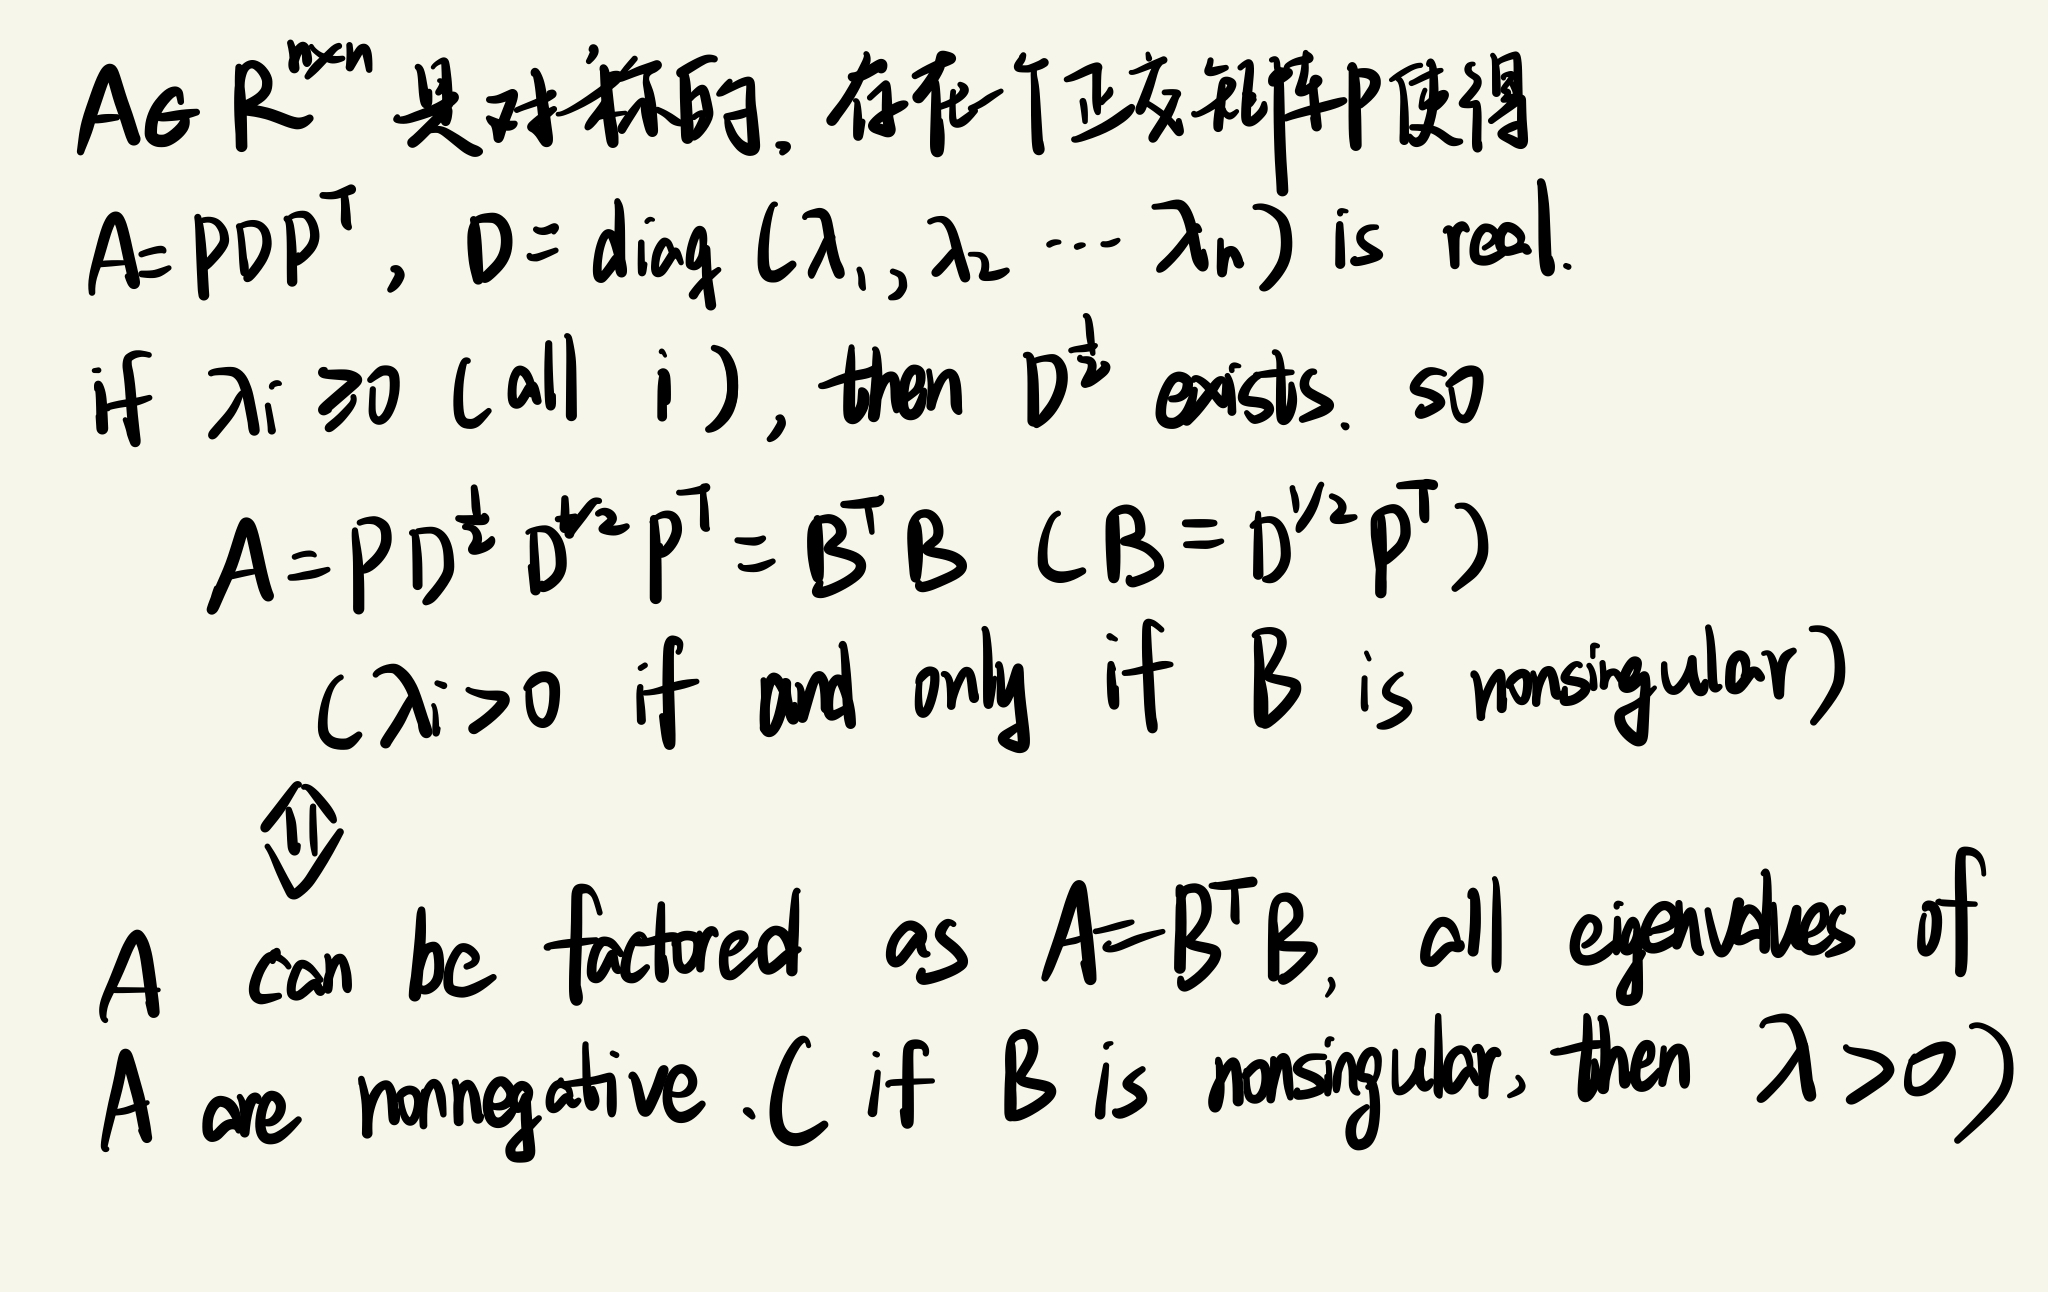 A∈R^{n×n} 是对称的. 存在个正交矩阵P使得
A=PDP^T, D=diag(λ₁,λ₂ ⋯ λₙ) is real.
if λi ≥0 (all i), then D^{1/2} exists. so
A=PD^{1/2} D^{1/2} P^T=B^T B (B=D^{1/2} P^T)
(λi>0 if and only if B is nonsingular)
⇕
A can be factored as A=B^T B, all eigenvalues of
A are nonnegative. (if B is nonsingular, then λ>0)